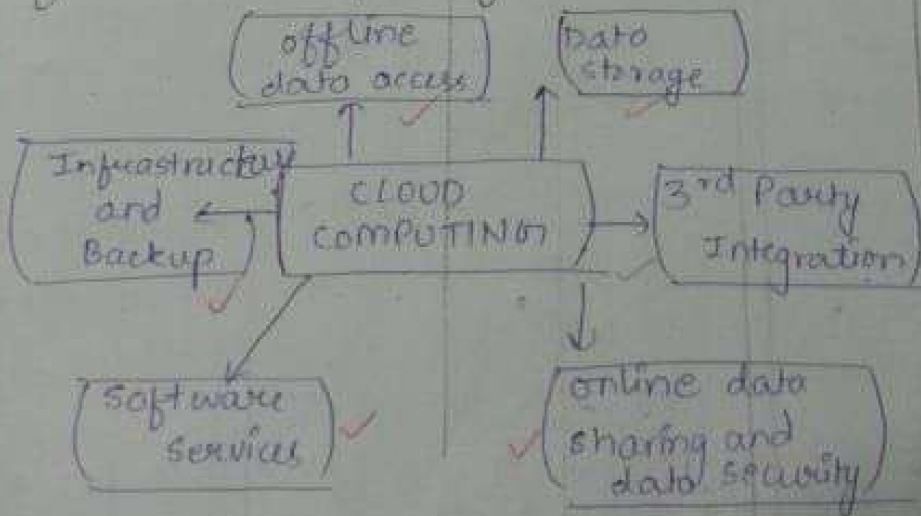 offline
data access
Data
storage
Infrastructure
and
Backup
CLOUD
COMPUTING
3rd Party
Integration
Software
Services
online data
sharing and
data security